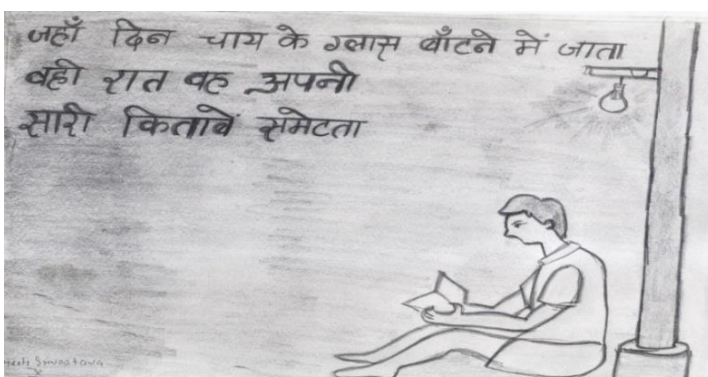 जहाँ दिन चाय के ग्लास बाँटने में जाता
वही रात वह अपनी
सारी किताबें समेटता
Srivastava